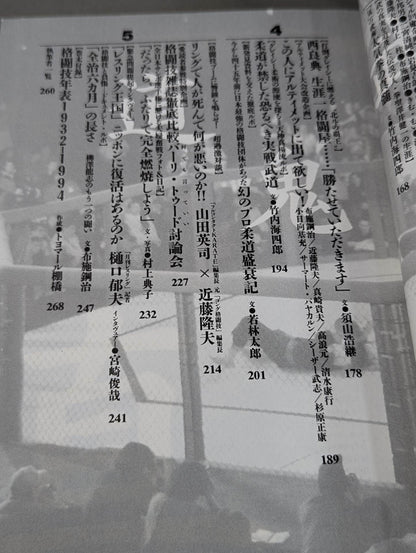 168
4
西良典 生涯一格闘家……「勝たせていただきます」
文●須山浩継
178
この人にアルティメットに出て欲しい!
布施鋼治/近藤隆夫/真崎貴夫/高浪元/清水康行/
小日向基充/サーマート・パヤカルン/シーザー武志/杉原正康
189
柔道が禁じた恐るべき実戦武道
文●竹内海四郎
194
幻のプロ柔道盛衰記
文●若林太郎
201
5
リングで人が死んで何が悪いのか!!
山田英司 × 近藤隆夫
214
格闘技雑誌徹底比較バーリ・トゥード討論会
227
「だったら、ふたりで完全燃焼しよう」
文・写真●村上典子
232
「レスリング王国」ニッポンに復活はあるのか
樋口郁夫
インタヴュアー●宮崎俊哉
241
「全治六カ月」の長さ
文●布施鋼治
247
【巻末付録】
格闘技年表―1932―1994
作成●トヨマール棚橋
268
執筆者一覧
260